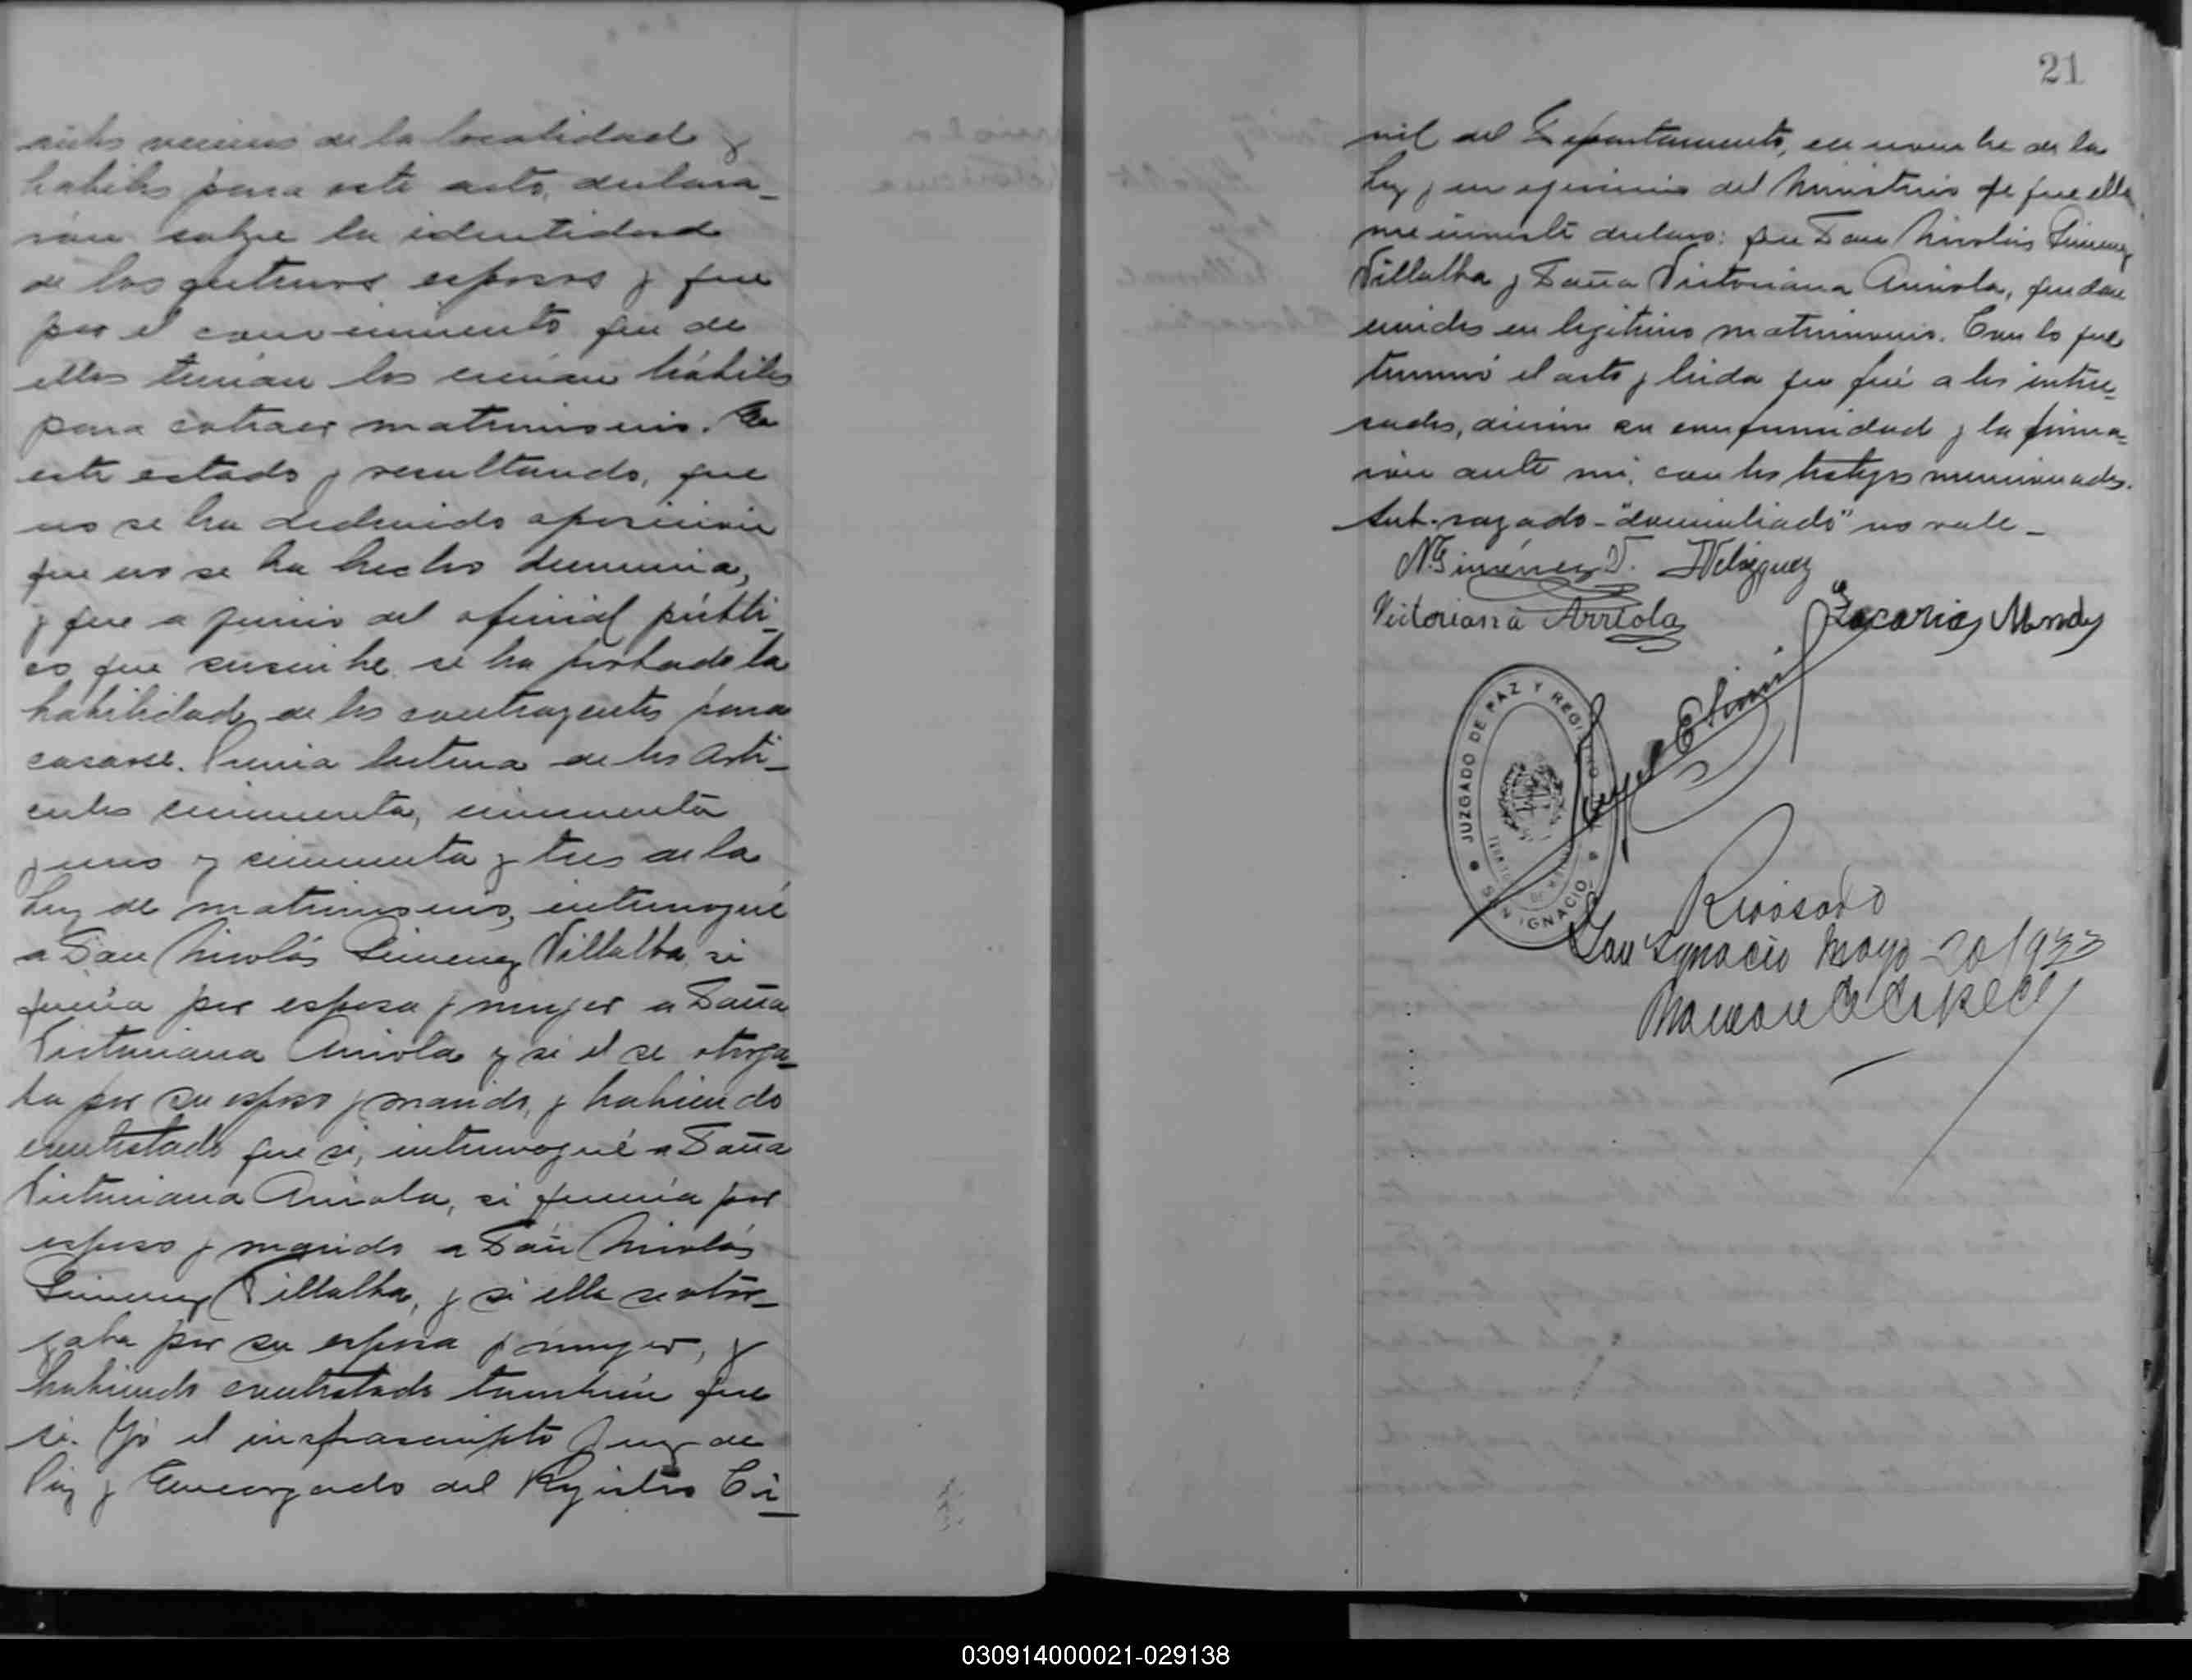 vecinos de la localidad y
habiles para este acto, declara-
ron sobre la identidad
de los futuros esposos y que
por el conocimiento que de
ellos tenían los creían hábiles
para cotraer matrimonio. En
este estado y resultando, que
no se ha deducido oposición
que no se ha hecho denuncia,
y que a juicio del oficial públi-
co que suscribe se ha probado la
habilidad de los contrayentes para
casarse. Previa lectura de los Arti-
culos cincuenta, cincuenta
y uno y cincuenta y tres de la
Ley de matrimonio, interrogué
a Don Nicolás Gimenez Villalba si
quería por esposa y mujer a Doña
Victoriana Arriola y si el se otorga-
ba por su esposo y marido, y habiendo
contestado que si, interrogué a Doña
Victoriana Arriola, si quería por
esposo y marido a Don Nicolás
Gimenez Villalba, y si ella se otor-
gaba por su esposa y mujer, y
habiendo contestado tambien que
si. Yo el infrascripto Juez de
Paz y Encargado del Registro Ci-
21
vil del Departamento, en nombre de la
Ley y en ejercicio del Ministerio que ella
me inviste declaro: que Don Nicolás Gimenez
Villalba y Doña Victoriana Arriola, quedan
unidos en legitimo matrimonio. Con lo que
terminó el acto y leida que fué a los intere-
sados, dieron su conformidad y la firma-
ron ante mi, con los testigos mencionados.
"domiciliado" no vale -
N. Giménez V. Velázquez
Victoriana Arriola Zacarias
JUZGADO DE PAZ Y REGISTRO
SAN IGNACIO
Revisado
San Ignacio Mayo 20/933
030914000021-029138